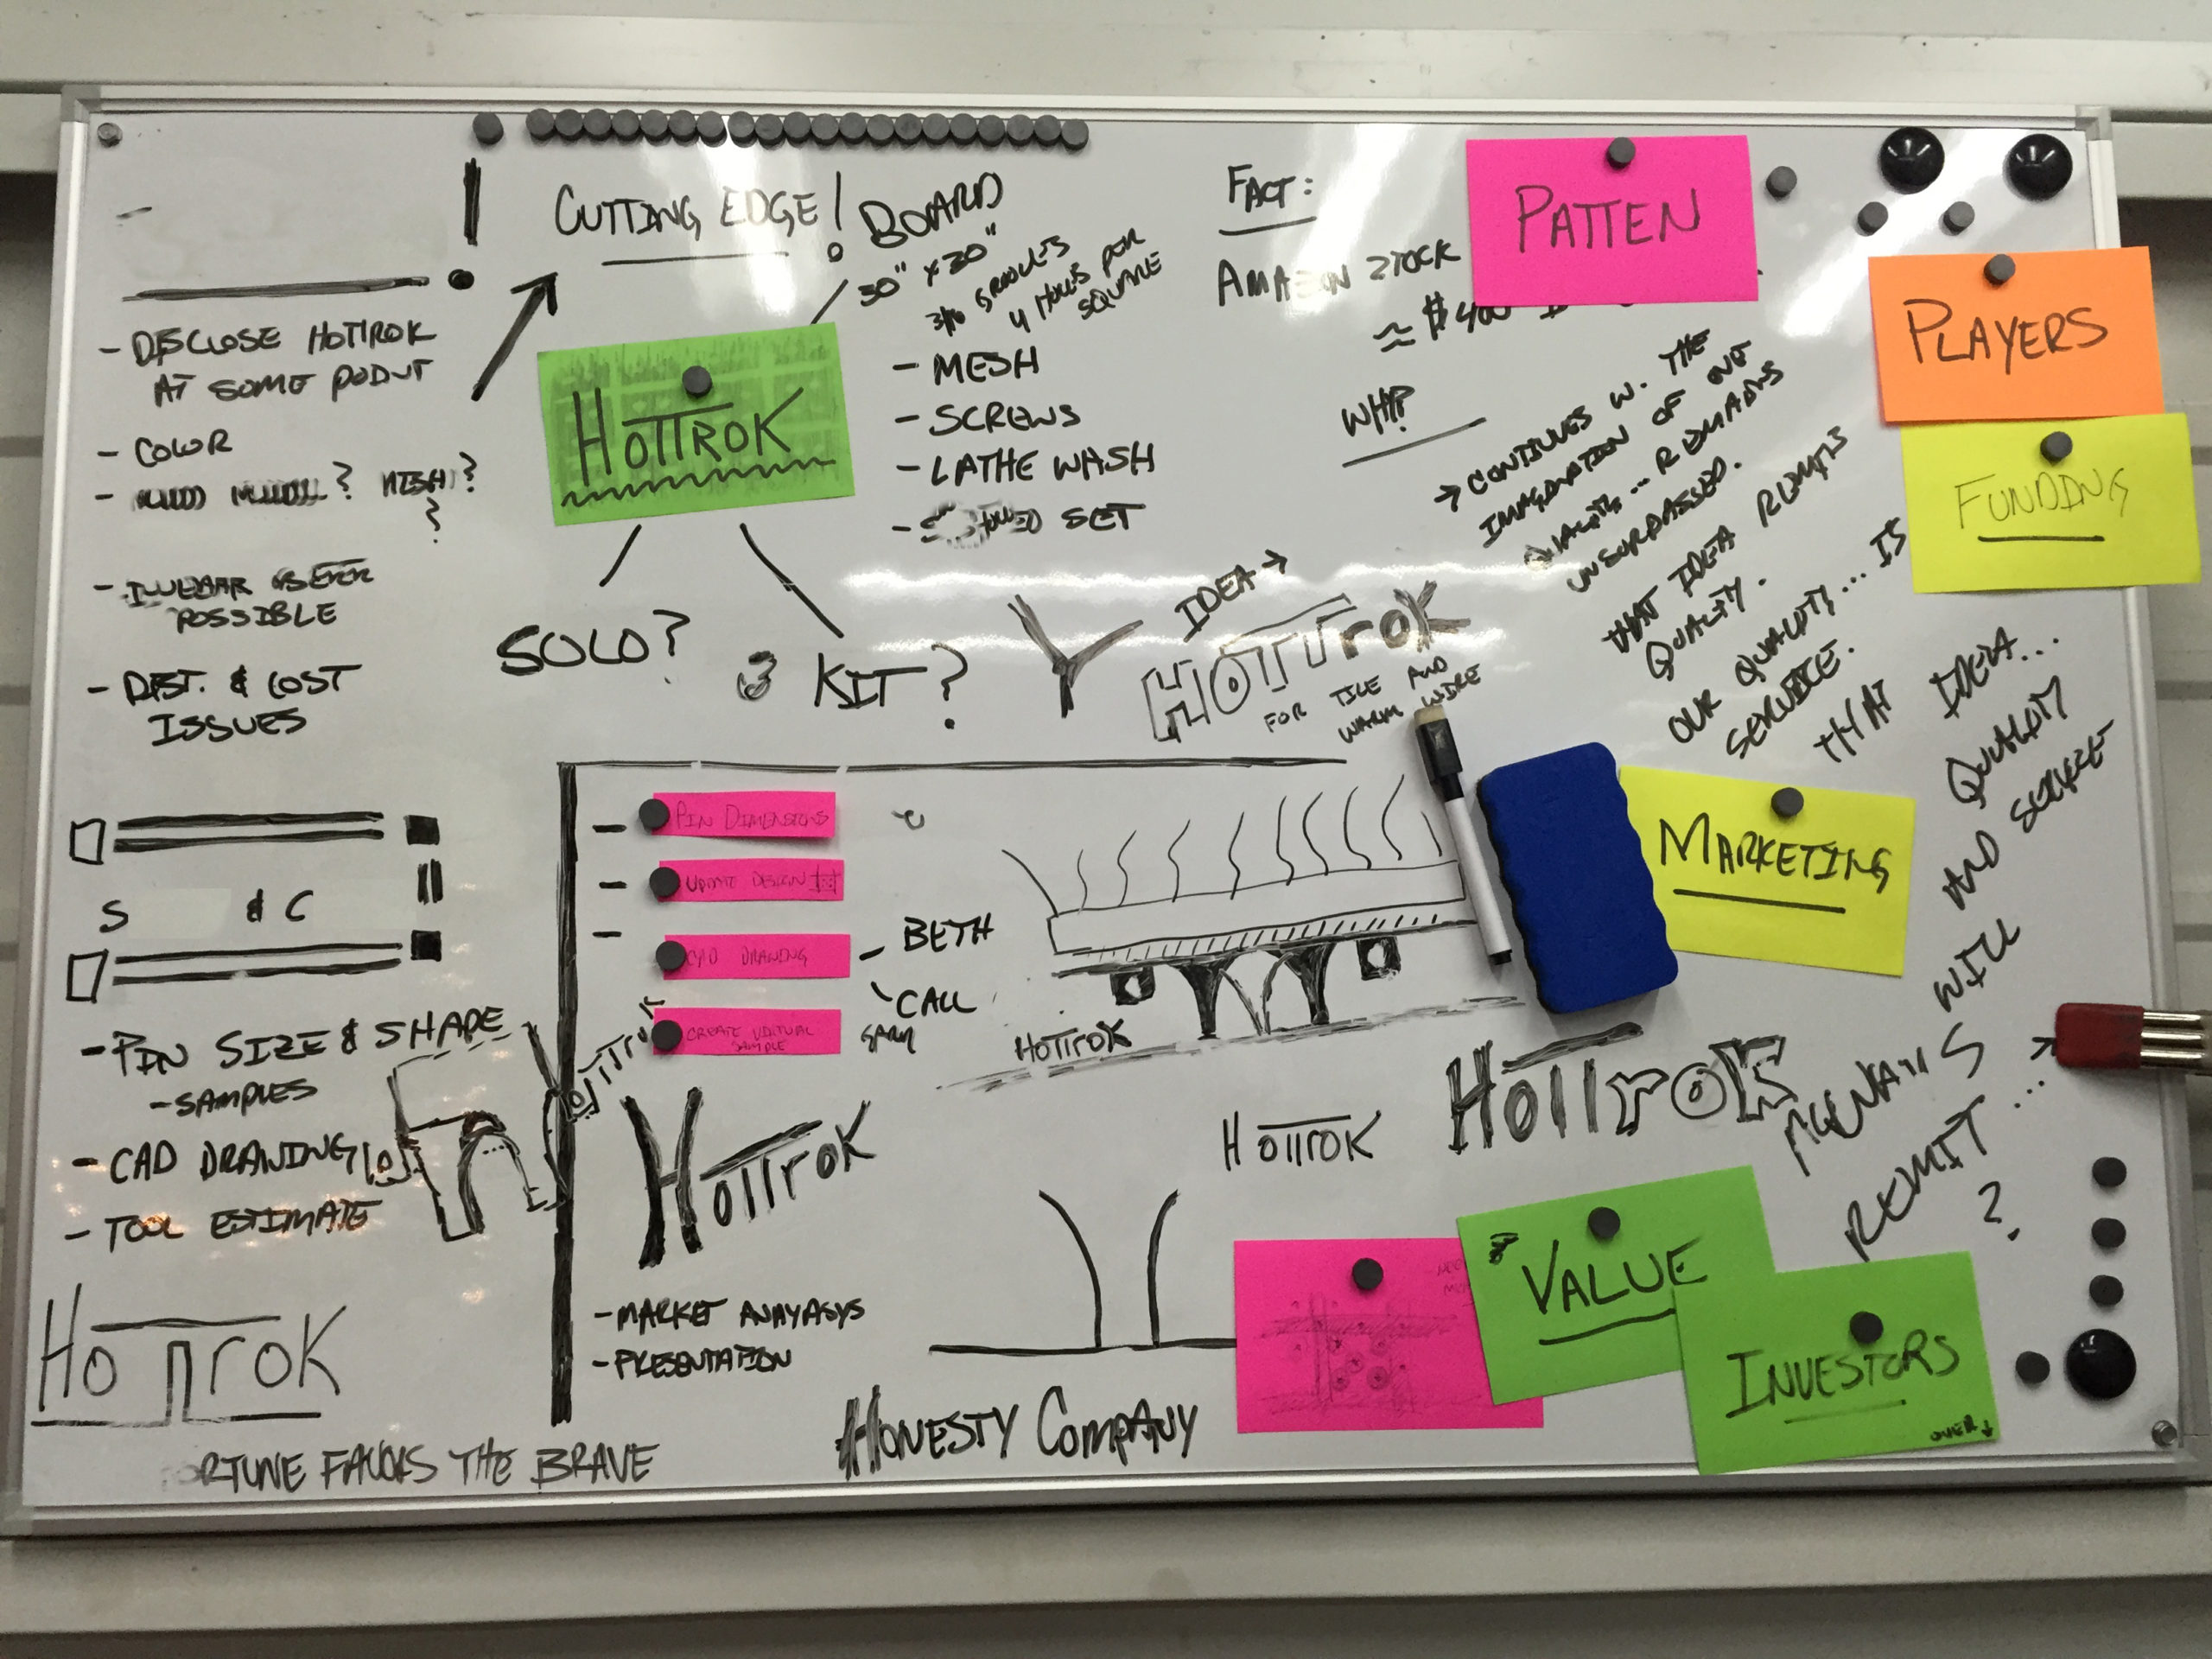 CUTTING EDGE!
- DISCLOSE HOTTROK
AT SOME
- COLOR
- MESH?
?
POSSIBLE
- DIST. & COST
ISSUES
S & C
- PIN SIZE & SHAPE
- SAMPLES
- CAD DRAWING
- TOOL ESTIMATE
HOTTROK
FAVORS THE BRAVE
HOTTROK
SOLO?
KIT?
BOARD
30" x 30"
3/16 GROOVES
4 HOLES PER
SQUARE
- MESH
- SCREWS
- LATHE WASH
- SET
IDEA →
HOTTROK
FOR TILE AND
WARM WIRE
- PIN DIMENSIONS
- UPDATE DESIGN
- CAD DRAWING - BETH
CALL
CREATE VIRTUAL
SAMPLE
HOTTROK
HOTTROK
- MARKET ANAYASYS
- PRESENTATION
HOTTROK
HOTTROK
HOTTROK
HONESTY COMPANY
FACT:
AMAZON STOCK
≈ $400
WHY?
→ CONTINUES W. THE
IMAGINATION OF OUR
QUALITY... REMAINS
UNSURPASSED.
THAT IDEA REMAINS
QUALITY.
OUR QUALITY... IS
SERVICE.
THAT IDEA...
QUALITY
AND SERVICE
WILL
ALWAYS
REMIT...
?
PATTEN
PLAYERS
FUNDING
MARKETING
VALUE
INVESTORS
OVER ↓